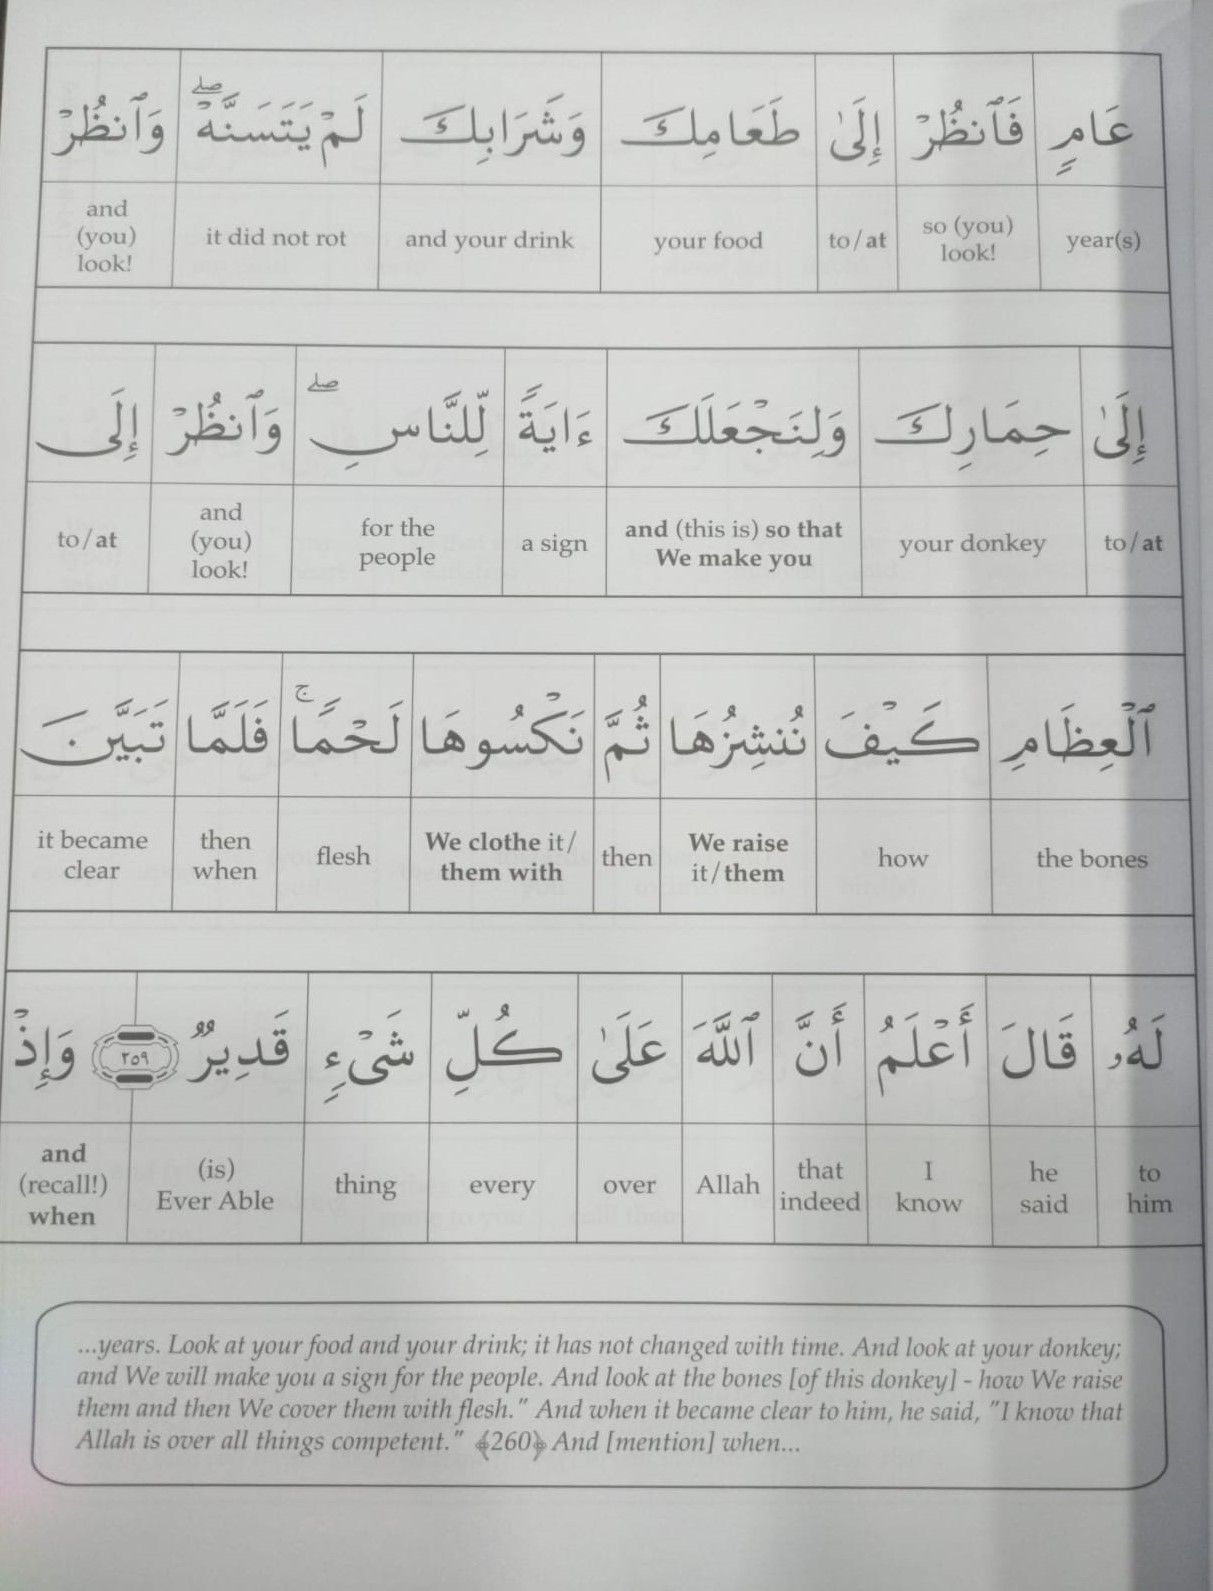 عَامٍ فَٱنظُرْ إِلَىٰ طَعَامِكَ وَشَرَابِكَ لَمْ يَتَسَنَّهْ ۖ وَٱنظُرْ
year(s) so (you) look! to/at your food and your drink it did not rot and (you) look!
إِلَىٰ حِمَارِكَ وَلِنَجْعَلَكَ ءَايَةً لِّلنَّاسِ ۖ وَٱنظُرْ إِلَى
to/at your donkey and (this is) so that We make you a sign for the people and (you) look! to/at
ٱلْعِظَامِ كَيْفَ نُنشِزُهَا ثُمَّ نَكْسُوهَا لَحْمًا ۚ فَلَمَّا تَبَيَّنَ
the bones how We raise it/them then We clothe it/them with flesh then when it became clear
لَهُۥ قَالَ أَعْلَمُ أَنَّ ٱللَّهَ عَلَىٰ كُلِّ شَىْءٍ قَدِيرٌ ٢٥٩ وَإِذْ
to him he said I know that indeed Allah over every thing (is) Ever Able and (recall!) when
...years. Look at your food and your drink; it has not changed with time. And look at your donkey;
and We will make you a sign for the people. And look at the bones [of this donkey] - how We raise
them and then We cover them with flesh." And when it became clear to him, he said, "I know that
Allah is over all things competent." ﴾260﴿ And [mention] when...